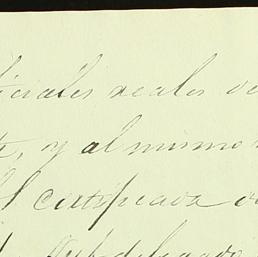 ficiales reales de
te, y al mismo
el certificara
Subdelegado